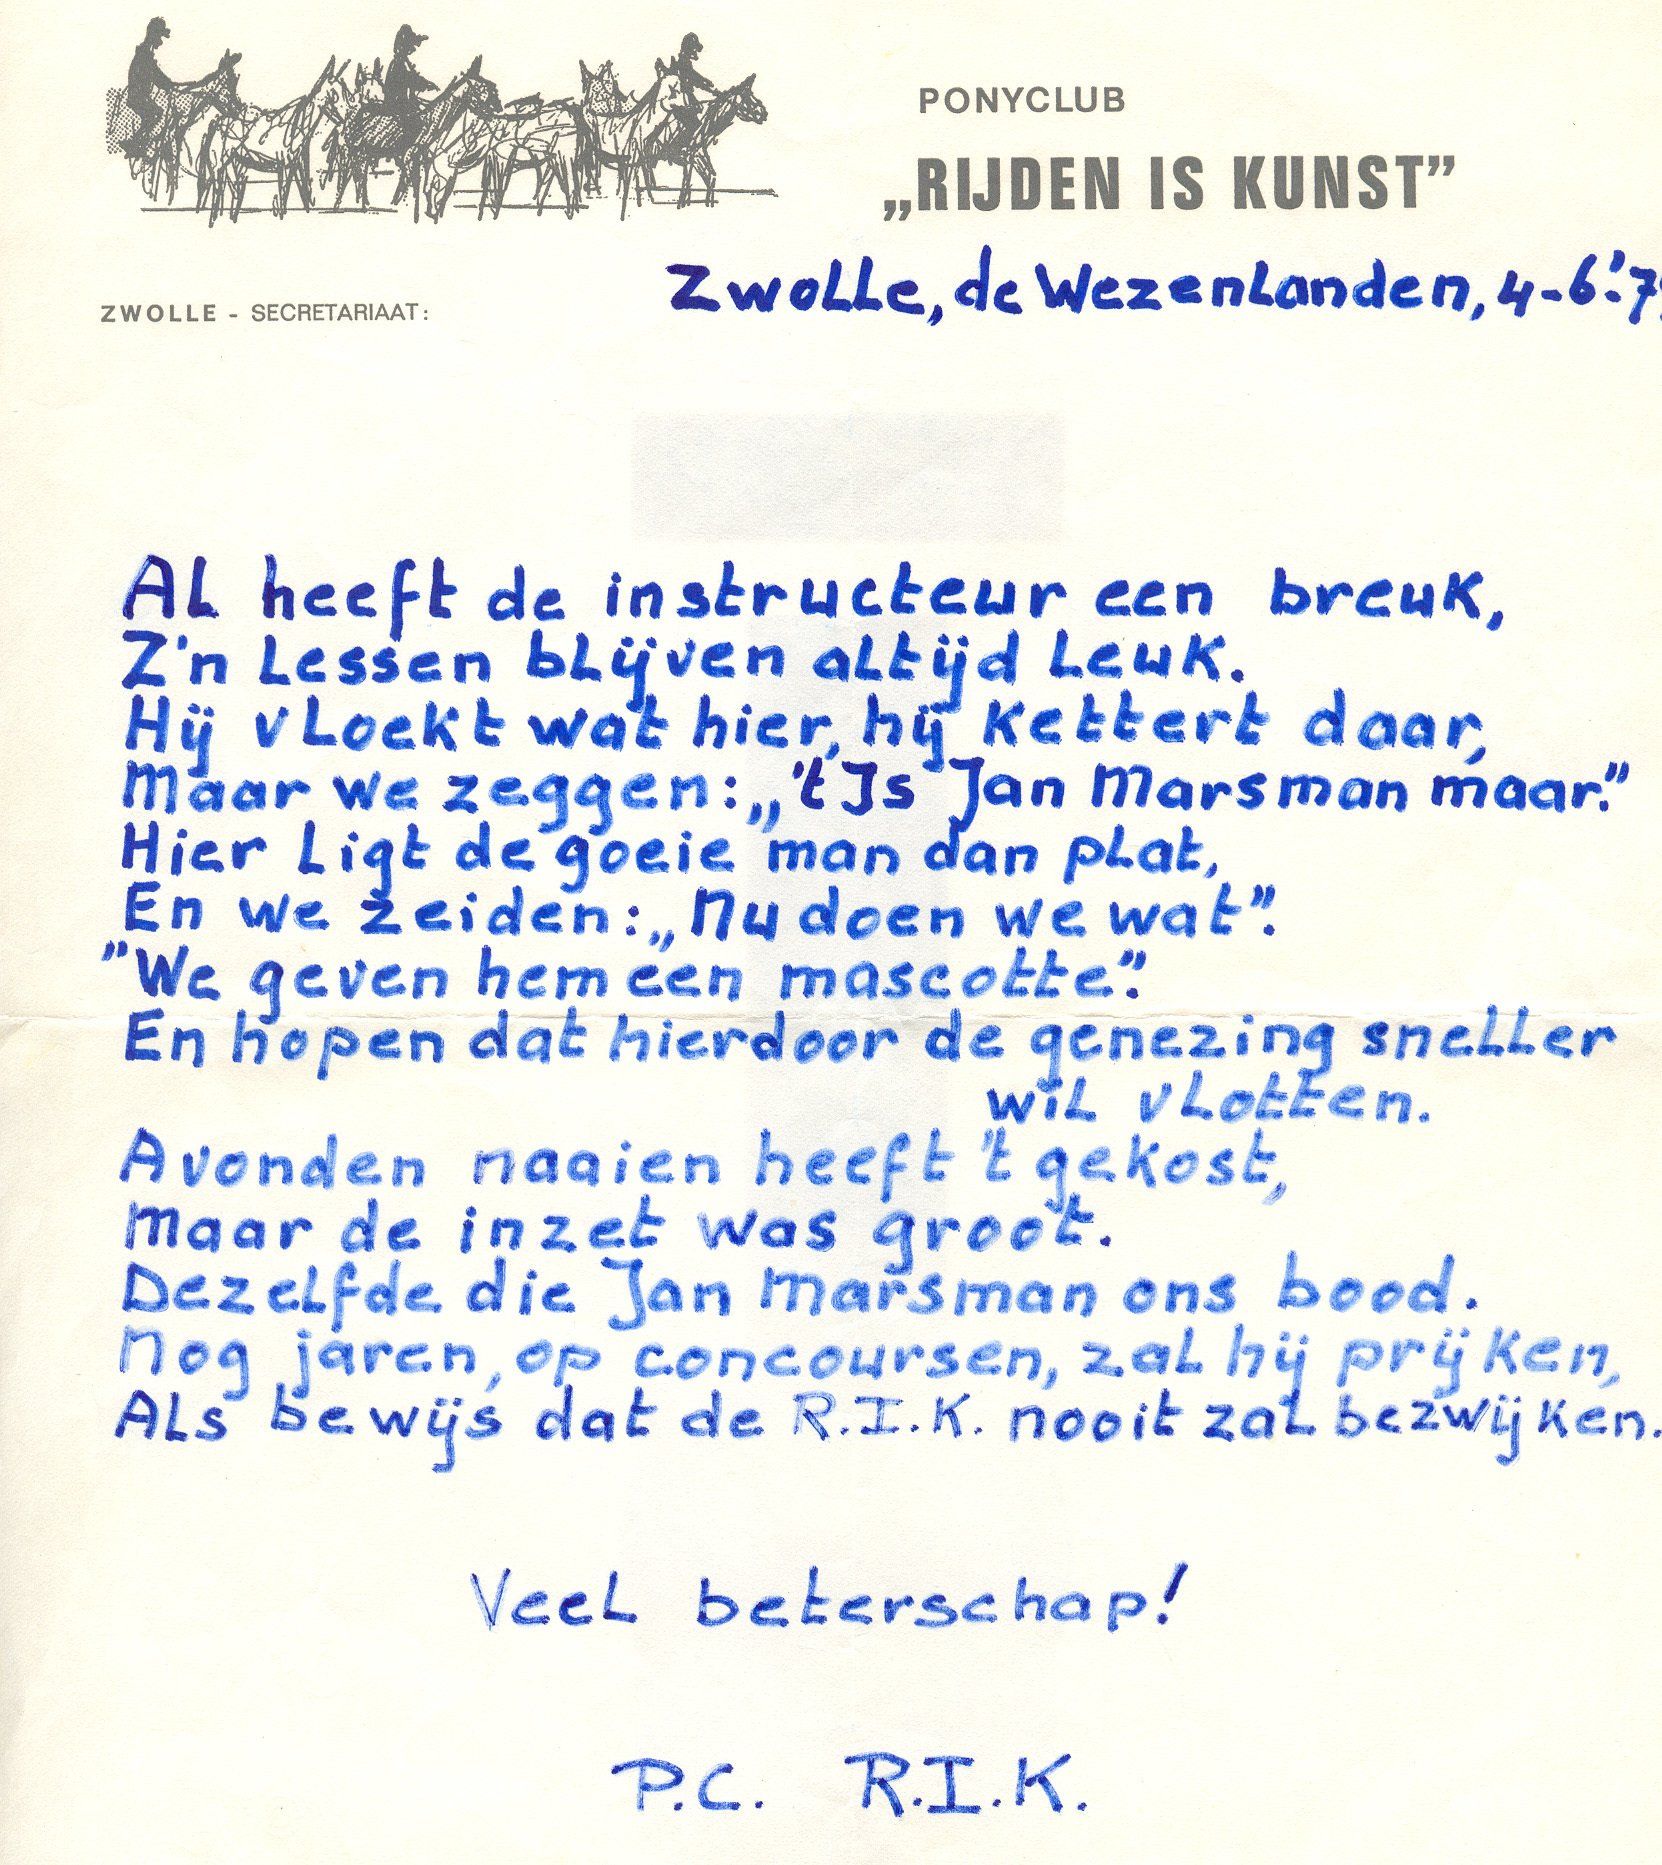 PONYCLUB
„RIJDEN IS KUNST”
Zwolle, de Wezenlanden, 4-6-'79
ZWOLLE - SECRETARIAAT:
Al heeft de instructeur een breuk,
Z'n lessen blijven altijd leuk.
Hij vloekt wat hier, hij kettert daar,
Maar we zeggen: „'t Is Jan Marsman maar.”
Hier ligt de goeie man dan plat,
En we zeiden: „Nu doen we wat”.
"We geven hem een mascotte".
En hopen dat hierdoor de genezing sneller
wil vlotten.
Avonden naaien heeft 't gekost,
Maar de inzet was groot.
Dezelfde die Jan Marsman ons bood.
Nog jaren, op concoursen, zal hij prijken,
Als bewijs dat de R.I.K. nooit zal bezwijken.
Veel beterschap!
P.C. R.I.K.